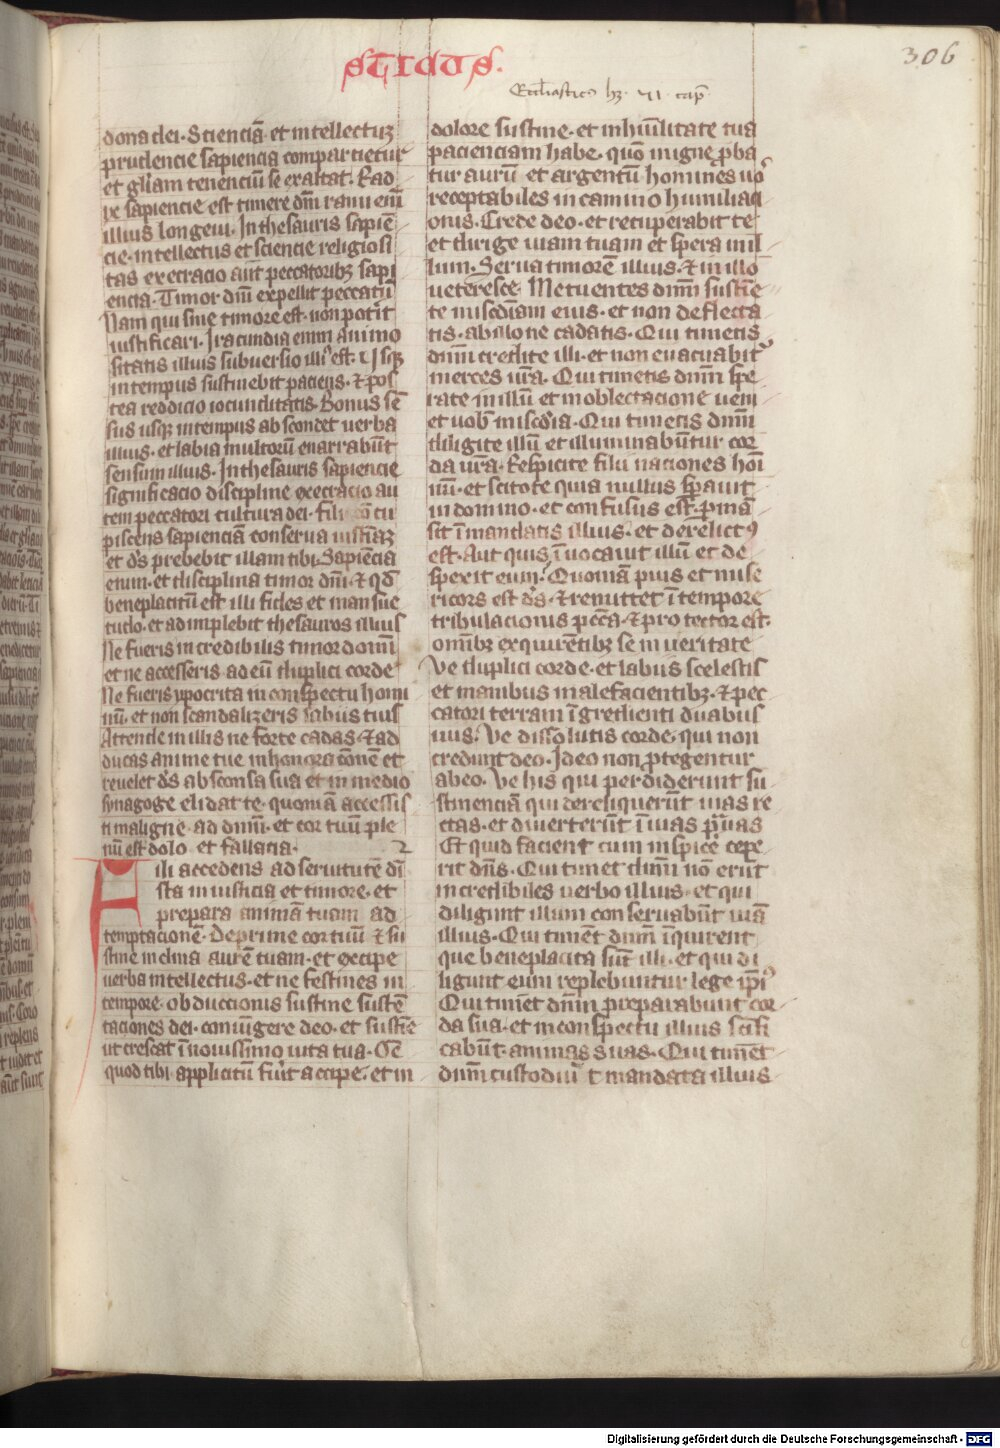 sticus.
306
Eccl'iasticꝰ hꝫ · VII · cap̄
dona dei · Scienciā · et intellectuꝫ
prudencie sapiencia compartietur
et gl'iam tenenciū se exaltat · Rad
ix sapiencie est timere dn̄m rami enī
illius longeui · In thesauris sapiē
cie · intellectus et sciencie religiosi
tas execracio aūt peccatoribꝫ sapi
encia · Timor dn̄i expellit peccatū
Nam qui sine timore est · non pot'it
iustificari · Iracundia enim animo
sitatis illius subuersio illi' est · Usqꝫ
in tempus sustinebit paciens · ⁊ pos
tea reddicio iocunditatis · Bonus sē
sus usqꝫ in tempus abscondet uerba
illius · et labia multorū enarrabūt
sensum illius · In thesauris sapiencie
significacio discipline execracio au
tem peccatori cultura dei · Fili cōcu
piscens sapienciā conserua iusticiaꝫ
et dī's prebebit illam tibi · Sapiencia
enim · et disciplina timor dn̄i · ⁊ qd̄
beneplacitū est illi fides et mansue
tudo · et adimplebit thesauros illius
Ne fueris incredibilis timori domini
et ne accesseris ad eū duplici corde
Ne fueris ypocrita in conspectu homi
nū · et non scandalizeris labiis tuis
Attende in illis ne forte cadas · ⁊ ad
ducas anime tue inhonoracōnem et
reuelet d's absconsa sua et in medio
synagoge elidat te · quoniā accessis
ti maligne · ad dn̄m · et cor tuū ple
nū est dolo et fallacia · 2
Fili accedens ad seruitutē dī
sta in iusticia et timore · et
prepara animā tuam ad
temptacionē · Deprime cor tuū ⁊ su
stine inclina aurē tuam · et excipe
uerba intellectus · et ne festines in
tempore · obduccionis sustine sustē
taciones dei · coniūgere deo · et sustīe
ut crescat ī nouissimo uita tua · Oē
quod tibi · applicitū fu'it accipe · et in
dolore sustine · et in hūilitate tua
pacienciam habe · quō in igne ꝓba
tur aurū et argentū homines uō
receptabiles in camino humiliaci
onis · Crede deo · et recuperabit te
et dirige uiam tuam et spera in il
lum · Serua timorē illius · ⁊ in illo
ueteresce · Metuentes dn̄m sustīe
te mis'cdiam eius · et non deflecta
tis · ab illo ne cadatis · Qui timetis
dn̄m credite illi · et non euacuabit'
merces ur̄a · Qui timetis dn̄m spe
rate in illū · et in oblectacione ueni
et uob' mis'cdia · Qui timetis dn̄m
diligite illū et illuminabūtur cor
da ur̄a · Respicite filii naciones hoī
nū · et scitote quia nullus sꝑauit
in domino · et confusus est · ꝑmā
sit ī mandatis illius · et derelictꝰ
est · Aut quis īuocauit illū et de
spexit eum · Quoniā pius et mise
ricors est d's · ⁊ remittet ī tempore
tribulacionis pc̄cā · ⁊ protector est ·
omībꝫ exquirētibꝫ se in ueritate
Ve duplici corde · et labiis scelestis
et manibus malefacientibꝫ · ⁊ pec
catori terram īgredienti duabus
uiis · Ve dissolutis corde · qui non
credunt deo · Ideo non ꝓtegentur
ab eo · Ve his qui perdiderunt su
stinenciā qui dereliquerūt uias re
ctas · et diuerterūt ī uias p̄uas
Et quid facient cum inspicē cepe
rit dn̄s · Qui timet dn̄m nō erūt
incredibiles uerbo illius · et qui
diligunt illum conseruabūt uiā
illius · Qui timēt dn̄m īquirent
que beneplacita sūt illi · et qui di
ligunt eum replebuntur lege ip̄iꝰ
Qui timēt dn̄m p̄reparabunt cor
da sua · et in conspectu illius sc̄ifi
cabūt · animas suas · Qui timēt
dn̄m custodiūt mandata illius
Digitalisierung gefördert durch die Deutsche Forschungsgemeinschaft - DFG